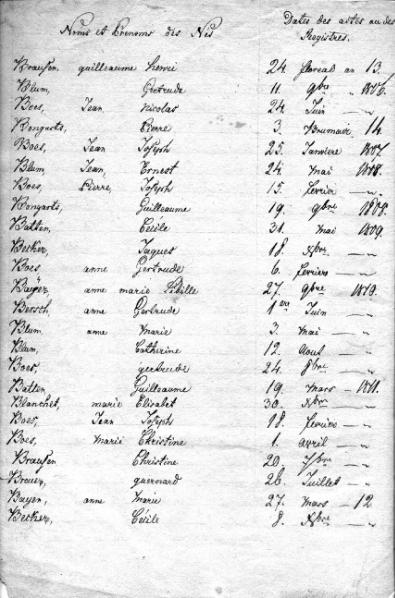 Noms et Prenoms des Nés
Dates des actes au des
Registres.
Braußen guilleaume henri 24. floreal an 13.
Blum, Gertrude 11. 9bre " 1806.
Boes, Jean Nicolas 24. Juin — "
Bongarts, Pierre 3. Brumair. 14.
Boes, Jean Joseph 25. Janviere 1807.
Blum, Jean, Ernest 24. mai 1808.
Boes, Pierre, Joseph 15. fevrier — "
Bongarts, Guilleaume 19. 9bre 1808.
Batten, Cécile 31. mai 1809.
Becker, Jaques 18. Xbre — "
Boes, anne Gertrude 6. fevriers — "
Bayer, anne marie Sibille 27. 9bre 1810.
Bersch, anne Gertrude 1er Juin — "
Blum anne Marie 3. mai — "
Blum, Catherine 12. Aout — "
Boes, gertrude 24. 8bre — "
Batten, Guilleaume 19. mars — 1811.
Blanchet, marie Elisabet 30. Xbre — "
Boes, Jean Joseph 18. fevriers — "
Boes, Marie Christine 1. avril — "
Braußen Christine 20. 7bre — "
Breuer, 26. Juillets — "
Bayen, anne Marie 27. Mars — 12
Becker, Cécile 8. Xbre — "